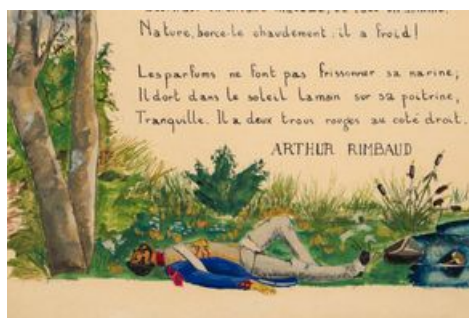 Nature, berce-le chaudement : il a froid!
Les parfums ne font pas frissonner sa narine;
Il dort dans le soleil la main sur sa poitrine,
Tranquille. Il a deux trous rouges au coté droit.
ARTHUR RIMBAUD